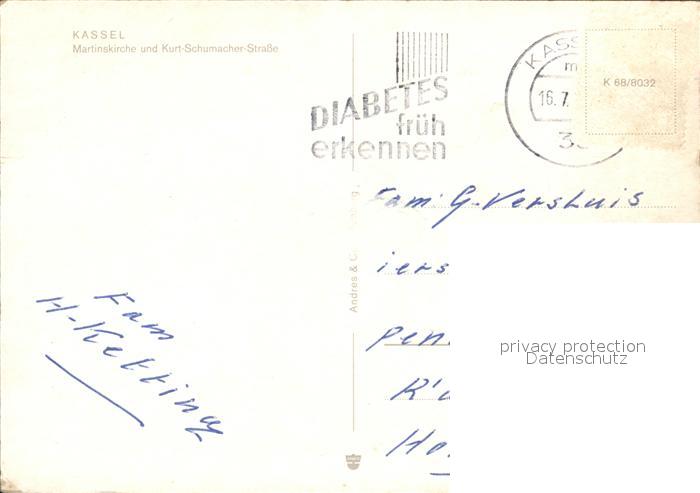 KASSEL
Martinskirche und Kurt-Schumacher-Straße
DIABETES
früh
erkennen
KASS
16.7.
K 68/8032
Fam. G. Versluis
iers
pen
Andres & C
Fam
H. Ketting
privacy protection
Datenschutz
R'd
Ho.